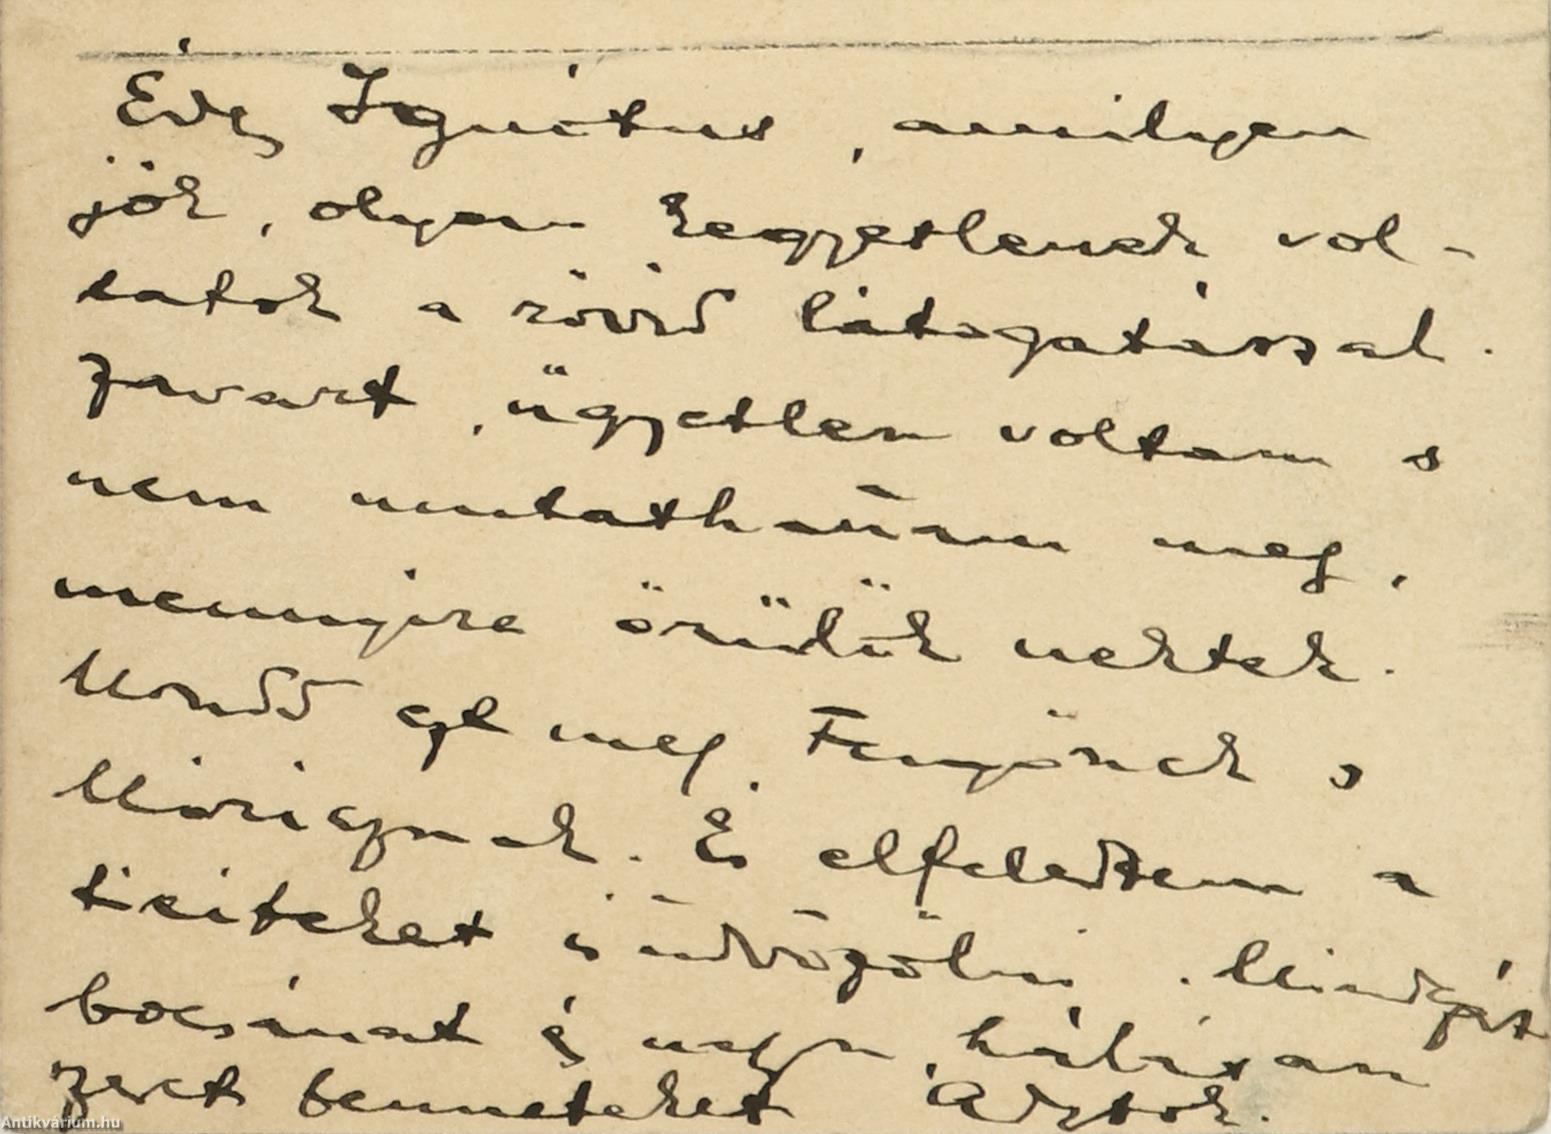 Édes Ignotus, amilyen
jók, olyan kegyetlenek vol-
tatok a rövid látogatással.
Zavart, ügyetlen voltam s
nem mutathattam meg,
mennyire örülök nektek.
Mondd ezt meg Fenyőnek s
Móricznak. És elfeledtem a
tieiteket is üdvözölni. Mindezért
bocsánat és nagyon, hálásan
szeret benneteket Adytok.
Antikvárium.hu